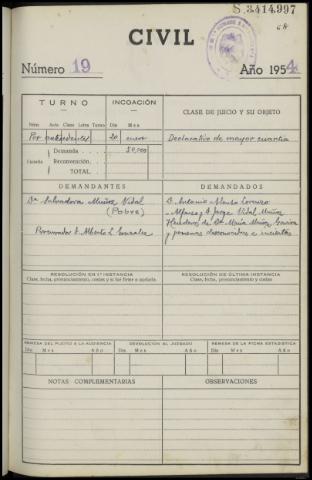 S.3414.997
CIVIL
Número 19 Año 1954
TURNO INCOACIÓN CLASE DE JUICIO Y SU OBJETO
Núm. Auto Clase Letra Turno Día Mes
Por antecedentes 20 enero Declarativo de mayor cuantía
Demanda 50,000
Cuantía Reconvención
TOTAL
DEMANDANTES DEMANDADOS
Dª Salvadora Muñoz Vidal D. Antonio Alonso
(Pobre) Alfonso y Jorge Vidal Muñoz
Herederos de Dª María Muñoz
Procurador D. Alberto L. González y personas desconocidas e inciertas
RESOLUCIÓN EN 1ª INSTANCIA RESOLUCIÓN DE ÚLTIMA INSTANCIA
Clase, fecha, pronunciamiento, costas y si fué firme o apelada Clase, fecha, pronunciamiento y costas
REMESA DEL PLEITO A LA AUDIENCIA DEVOLUCIÓN AL JUZGADO REMESA DE LA FICHA ESTADÍSTICA
Día Mes Año Día Mes Año Día Mes Año
NOTAS COMPLEMENTARIAS OBSERVACIONES